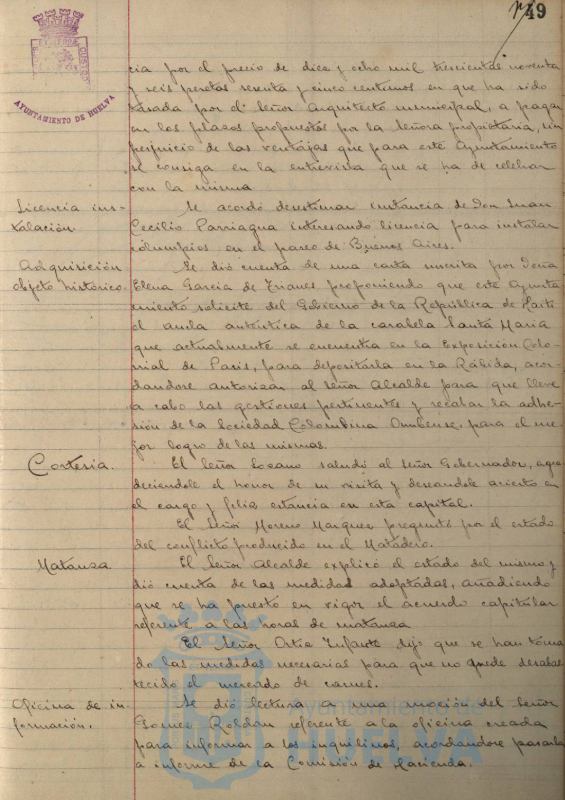 49
AYUNTAMIENTO DE HUELVA
cia por el precio de diez y ocho mil trescientas noventa
y seis pesetas sesenta y cinco centimos en que ha sido
tasada por el Señor Arquitecto municipal, a pagar
en los plazos propuestos por la Señora propietaria, sin
perjuicio de las ventajas que para este Ayuntamiento
se consiga en la entrevista que se ha de celebrar
con la misma
Licencia ins-
talación.
Se acordó desestimar instancia de Don Juan
Cecilio Parriagua interesando licencia para instalar
columpios en el paseo de Buenos Aires.
Adquisición
objeto histórico.
Se dió cuenta de una carta suscrita por Doña
Elena Garcia de Trianes proponiendo que este Ayunta-
miento solicite del Gobierno de la República de Haiti
el ancla autentica de la carabela Santa Maria
que actualmente se encuentra en la Exposición Colo-
nial de Paris, para depositarla en la Rábida, acor-
dandose autorizar al Señor Alcalde para que lleve
a cabo las gestiones pertinentes y recabar la adhe-
sión de la Sociedad Colombina Onubense, para el me-
jor logro de las mismas.
Cortesia.
El Señor Lozano saludó al Señor Gobernador, agra-
deciendole el honor de su visita y deseandole acierto en
el cargo y feliz estancia en esta capital.
El Señor Moreno Marquez preguntó por el estado
del conflicto producido en el Matadero.
Matanza.
El Señor Alcalde explicó el estado del mismo y
dió cuenta de las medidas adoptadas, añadiendo
que se ha puesto en vigor el acuerdo capitular
referente a las horas de matanza
El Señor Ortiz Infante dijo que se han toma-
do las medidas necesarias para que no quede desabas-
tecido el mercado de carnes.
Oficina de in-
formación.
Se dió lectura a una moción del Señor
Gomez Roldan referente a la oficina creada
para informar a los inquilinos, acordandose pasarla
a informe de la Comisión de Hacienda.
Ayuntamiento de
HUELVA